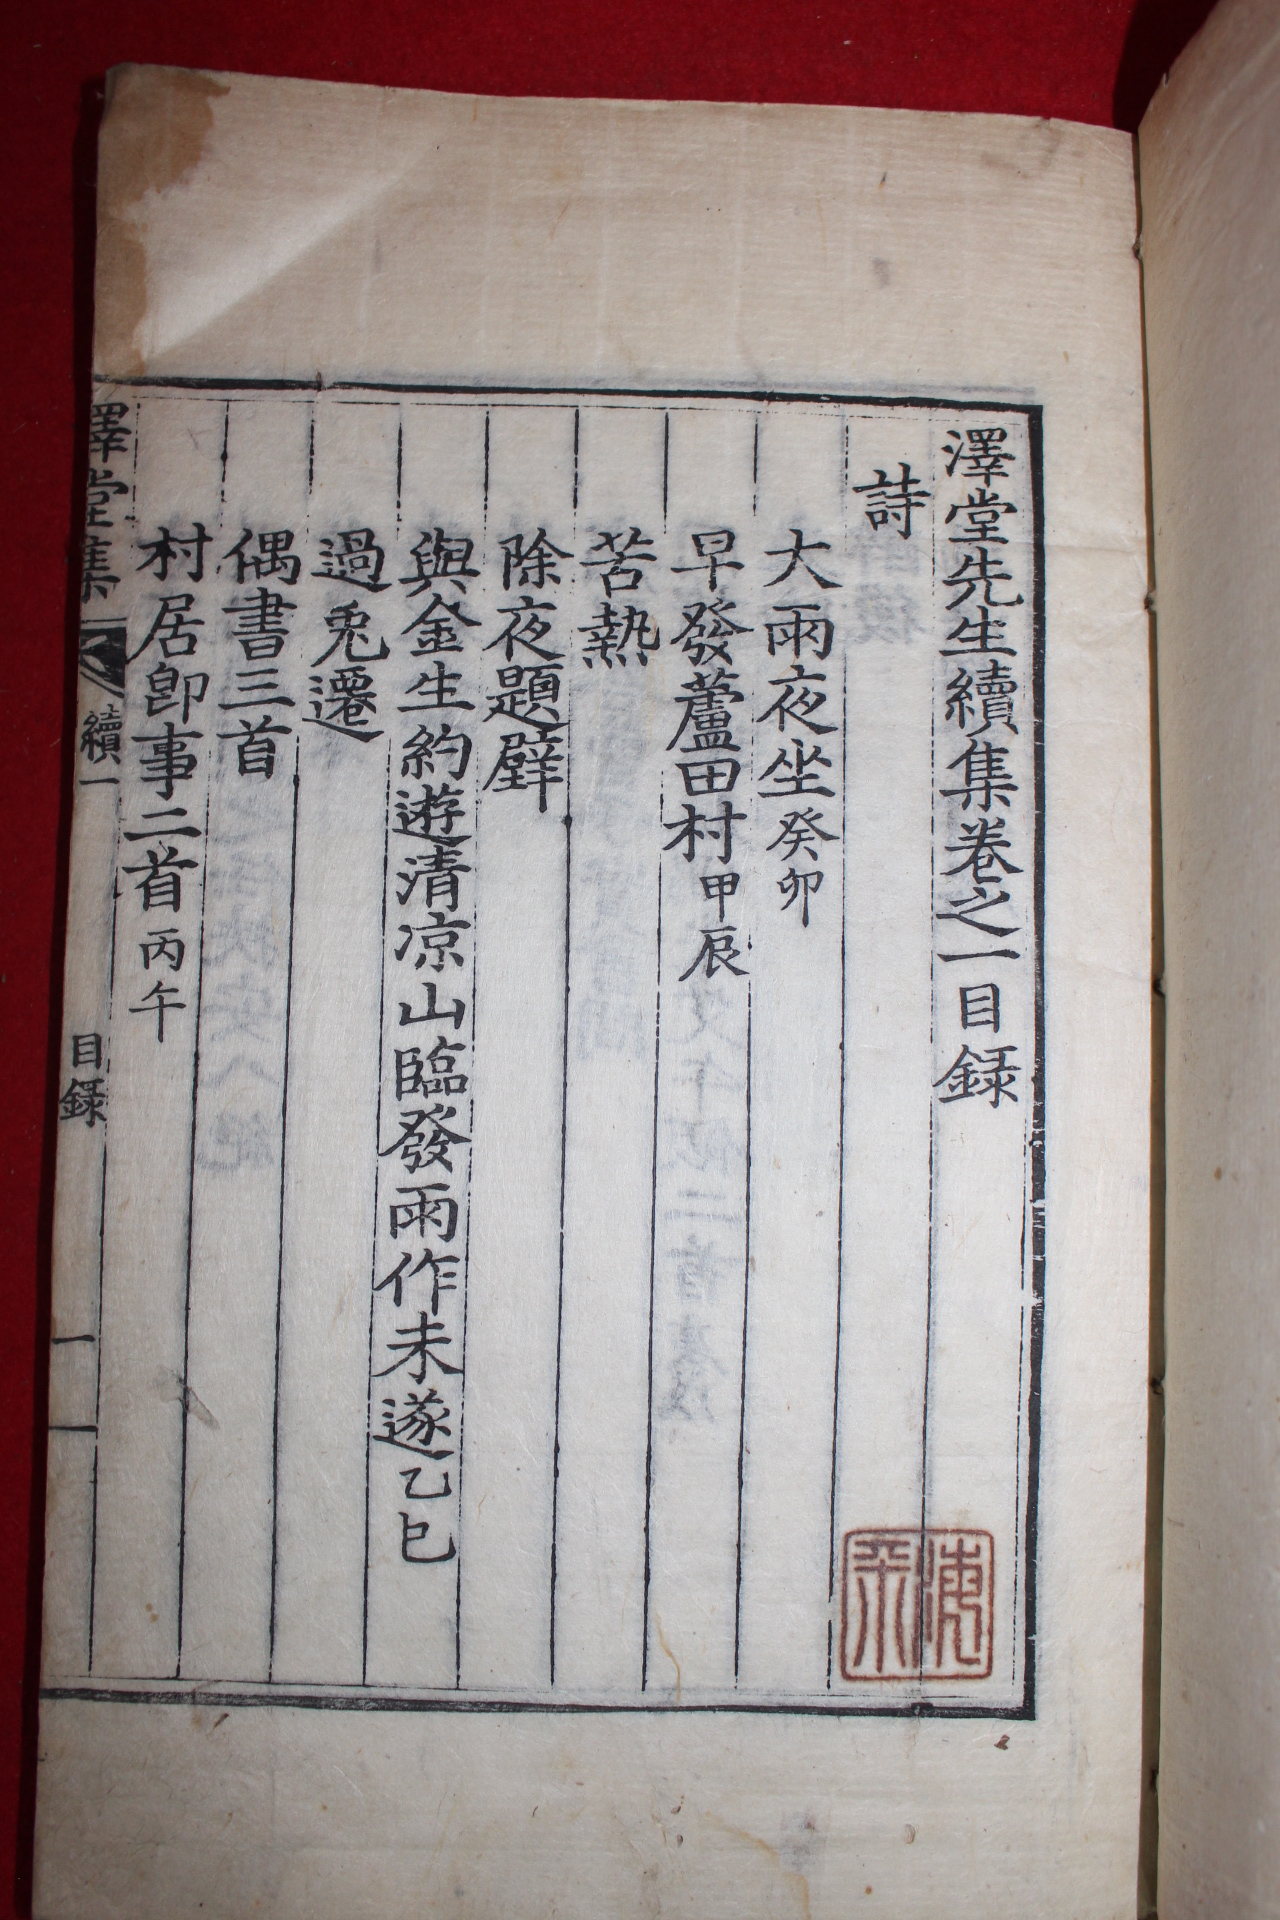 澤堂先生續集卷之一目録
詩
大雨夜坐癸卯
早發蘆田村甲辰
苦熱
除夜題壁
與金生約遊清凉山臨發雨作未遂乙巳
過兎遷
偶書三首
村居卽事二首丙午
澤堂集 續一 目録 一